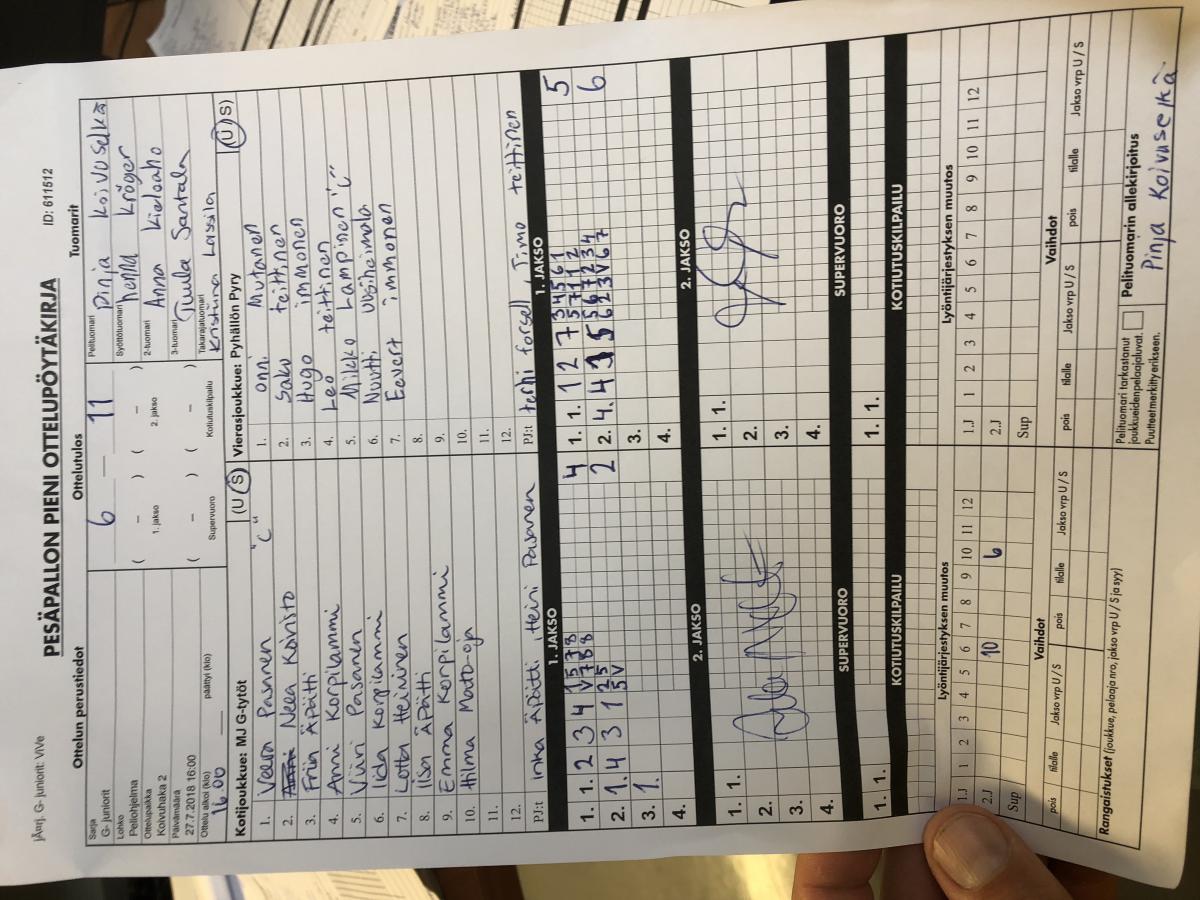 jÄrj. G- Juniorit: ViVe
PESÄPALLON PIENI OTTELUPÖYTÄKIRJA
ID: 611512
Ottelun perustiedot
Ottelutulos
Tuomarit
Sarja
G- juniorit
Lohko
Peliohjelma
Ottelupaikka
Koivuhaka 2
Päivämäärä
27.7.2018 16:00
Ottelu alkoi (klo)
16.00
päättyi (klo)
6 – 11
( – ) ( – )
1. jakso
2. jakso
( – ) ( – )
Supervuoro
Kotiutuskilpailu
Pelituomari
Pinja Koivuselkä
Syöttötuomari
henna Kröger
2-tuomari
Anna Kieloaho
3-tuomari
Tuula Santala
Takarajatuomari
Kristiina Lassila
Kotijoukkue: MJ G-tytöt
(U / S)
1. Veera Pasanen "C"
2. Neea Koivisto
3. Fria Äpätti
4. Anni Korpilammi
5. Viivi Pasanen
6. Iida Korpilammi
7. Lotta Heininen
8. Ilsa Äpätti
9. Emma Korpilammi
10. Hilma Mato-oja
11.
12.
PJ:t Inka Äpätti, Heini Pasanen
Vierasjoukkue: Pyhällön Pyry
(U / S)
1. Onni Mutanen
2. Saku teittinen
3. Hugo immonen
4. Leo teittinen
5. Mikko Lampinen "C"
6. Nuutti Uusiheimala
7. Eevert immonen
8.
9.
10.
11.
12.
PJ:t terhi forsell, Timo teittinen
1. JAKSO
1. 1. 2 3 4 4
2. 1. 4 3 1 2
3. 1.
4.
1. JAKSO
1. 1. 1 2 7 5
2. 4. 4 6
3.
4.
2. JAKSO
1. 1.
2.
3.
4.
2. JAKSO
1. 1.
2.
3.
4.
SUPERVUORO
1. 1.
SUPERVUORO
1. 1.
KOTIUTUSKILPAILU
KOTIUTUSKILPAILU
Lyöntijärjestyksen muutos
1.J 1 2 3 4 5 6 7 8 9 10 11 12
2.J 10 6
Sup
Lyöntijärjestyksen muutos
1.J 1 2 3 4 5 6 7 8 9 10 11 12
2.J
Sup
Vaihdot
pois tilalle Jakso vrp U / S pois tilalle Jakso vrp U / S
Vaihdot
pois tilalle Jakso vrp U / S pois tilalle Jakso vrp U / S
Rangaistukset (joukkue, pelaaja nro, jakso vrp U / S ja syy)
Pelituomari tarkastanut
joukkueidenpelaajaluvat.
Puutteet merkitty erikseen.
Pelituomarin allekirjoitus
Pinja Koivuselkä